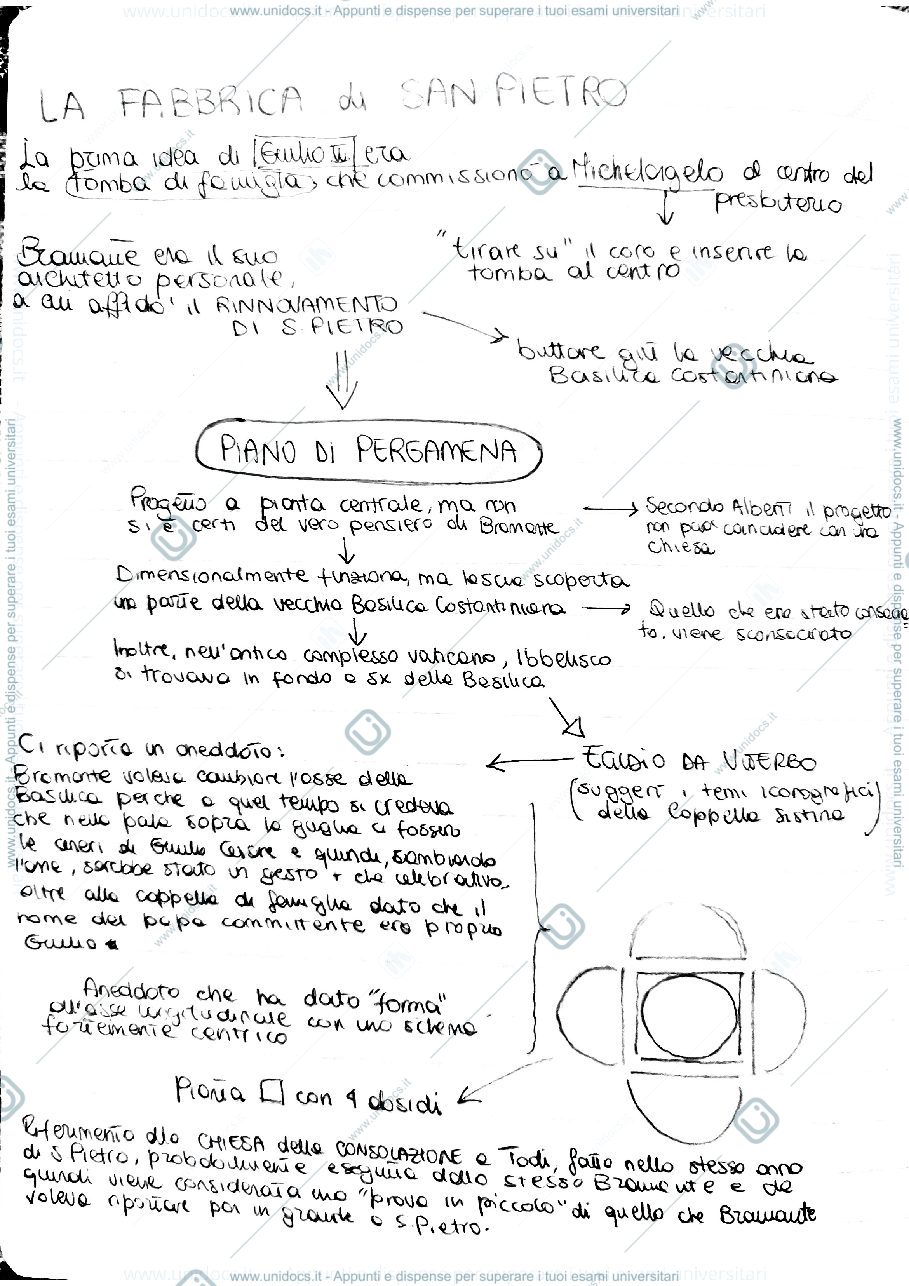 www.unidocs.it - Appunti e dispense per superare i tuoi esami universitari
LA FABBRICA di SAN PIETRO
La prima idea di Giulio II era
la tomba di famiglia, che commissionò a Michelangelo al centro del
presbiterio
"tirare su" il coro e inserire la
tomba al centro
Bramante era il suo
architetto personale,
a cui affidò il RINNOVAMENTO
DI S. PIETRO
buttare giù la vecchia
Basilica Costantiniana
PIANO DI PERGAMENA
Progetto a pianta centrale, ma non
si è certi del vero pensiero di Bramante
Secondo Alberti il progetto
non può coincidere con una
chiesa
Dimensionalmente funziona, ma lascia scoperta
una parte della vecchia Basilica Costantiniana
Quello che era stato consacra
to, viene sconsacrato
Inoltre, nell'antico complesso vaticano, l'obelisco
si trovava in fondo a sx della Basilica
EGIDIO DA VITERBO
(suggerì i temi iconografici
della Cappella Sistina)
Ci riporta un aneddoto:
Bramante voleva cambiare l'asse della
Basilica perché a quel tempo si credeva
che nella palla sopra la guglia ci fossero
le ceneri di Giulio Cesare e quindi, cambiando
l'asse, sarebbe stato un gesto + che celebrativo,
oltre alla cappella di famiglia dato che il
nome del papa committente era proprio
Giulio
Aneddoto che ha dato "forma"
all'asse longitudinale con uno schema
fortemente centrico
Pianta □ con 4 absidi
Riferimento alla CHIESA della CONSOLAZIONE a Todi, fatta nello stesso anno
di S Pietro, probabilmente eseguita dallo stesso Bramante e da
quindi viene considerata una "prova in piccolo" di quello che Bramante
voleva riportare poi in grande a S. Pietro.
www.unidocs.it - Appunti e dispense per superare i tuoi esami universitari